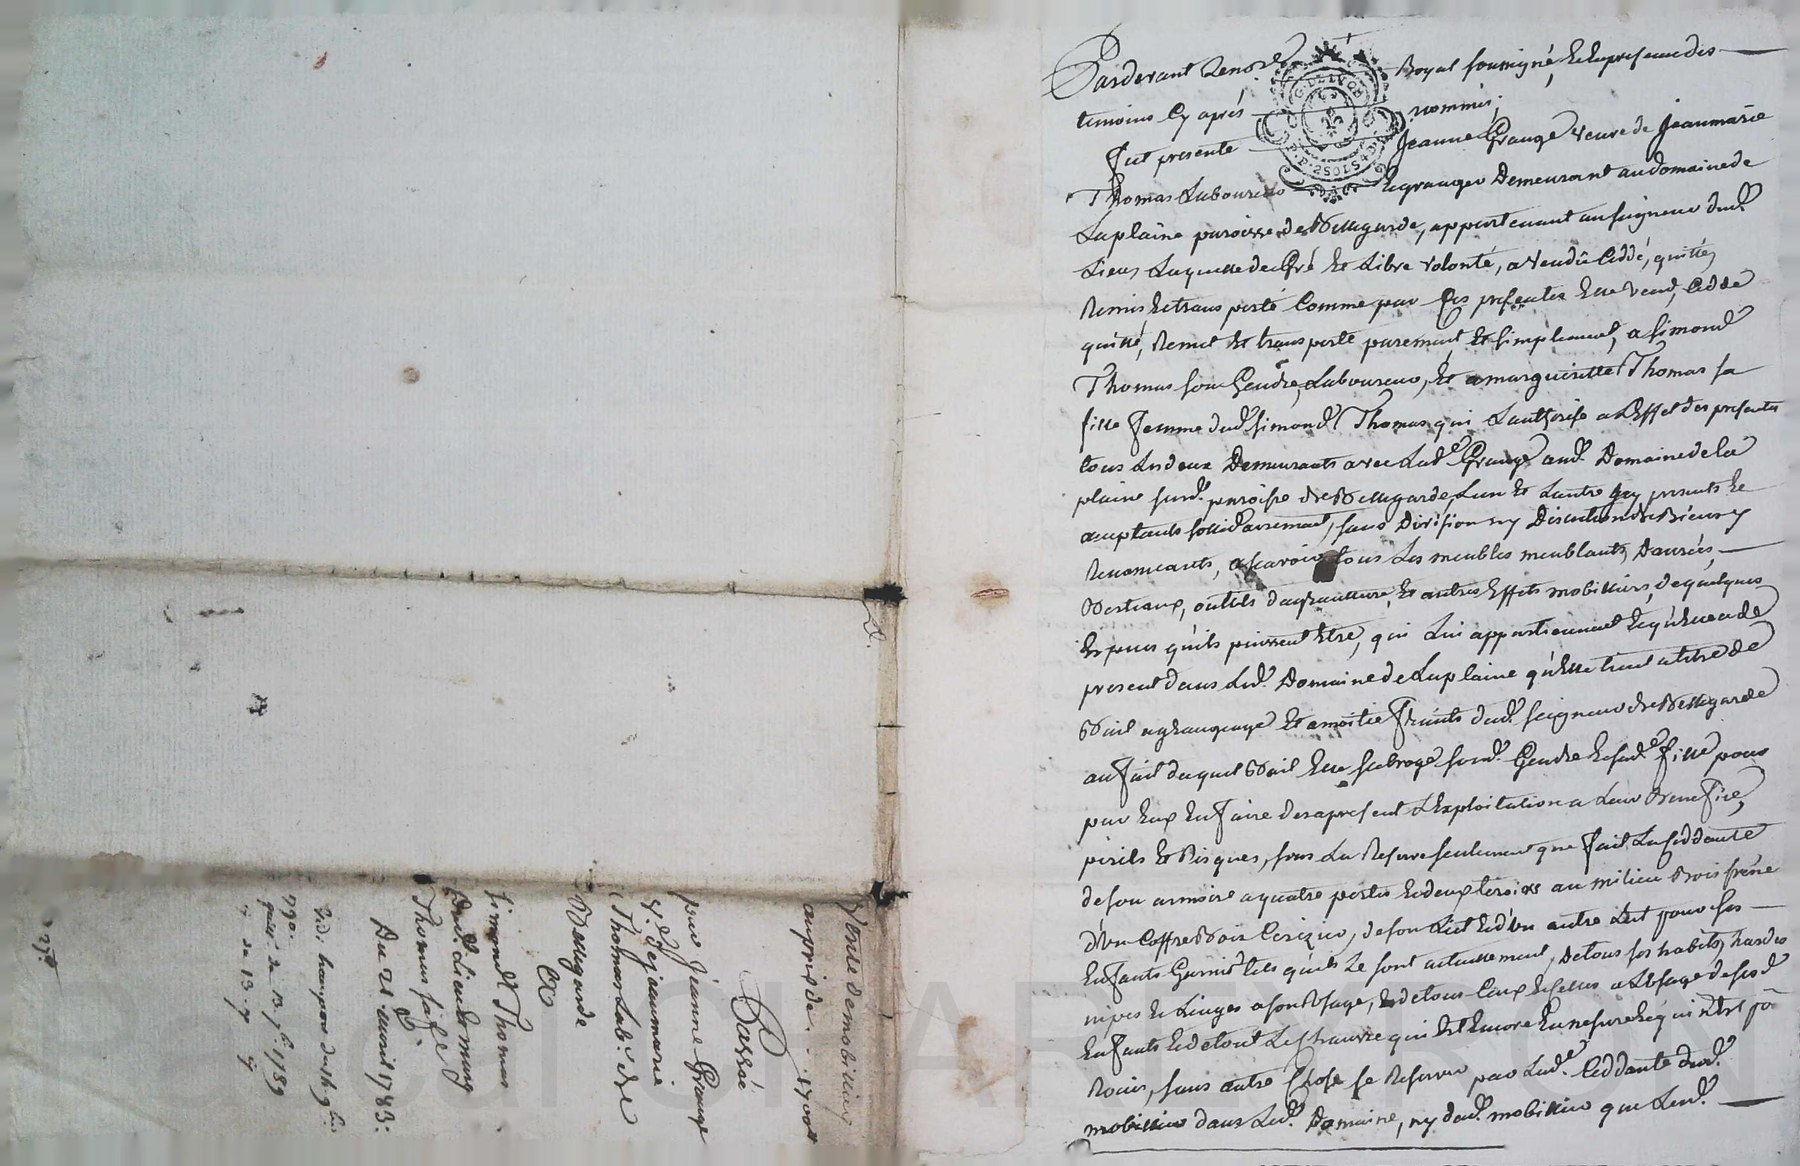 Pardevant Le no.re Royal soussigné, et en presence des
temoins cy aprés nommés;
fut presente Jeanne Grange veuve de Jeanmarie
Thomas Laboureur et granger Demeurant au domaine de
Laplaine paroisse de Bellegarde, appartenant au seigneur dud.
Lieu, Laquelle de Gré et Libre volonté, a vendû Ceddé, quitté,
Remis et transporté Comme par Ces presentes Elle vend, Cedde
quitte, Remet et transporte purement et simplement, a simond
Thomas son Gendre, Laboureur, et a marguerite Thomas sa
fille femme dud. simond Thomas qui L'authorise a L'Effet des presentes
tous Les deux Demeurants avec Lad.e Grange aud. Domaine de la
plaine susd. paroisse de Bellegarde, L'un et L'autre icy presents et
acceptants sollidairement, sans Division ny Discution de Biens y
Renonceants, ascavoir tous Les meubles meublants, Danrées,
Bestiaux, outils d'agriculture, et autres Effets mobilliers, de quelques
Especes qu'ils puissent Etre, qui Lui appartiennent et qu'elle a de
present dans Led. Domaine de Laplaine qu'Elle tient a titre de
Bail a grangeage et a moitié fruits dud. seigneur de Bellegarde
au fait duquel Bail Elle subroge sond. Gendre et sad.e fille pour
par Eux En faire des a present L'Exploitation a Leur Benefice,
perils et Risques, sous La Reserve seulement que fait La Ceddante
de son armoire a quatre portes et deux tiroirs au milieu Bois frêne
d'un Coffre Bois Cerizier, de son Lict et d'un autre Lict pour ses
Enfants Garnis tels qu'ils Le sont actuellement, de tous ses habits, hardes
nipes et Linges a son Usage, et de tous Ceux et Celles a L'Usage de sesd.
Enfants et de tout Le Chanvre qui Est Encore En nature et qui n'Est pas
Roui, sans autre Chose se Reserver par Lad.e Ceddante dud.
mobillier dans Led. Domaine, ny dud. mobillier que Lesd.
Vente de mobilier
au prix de 1700#
Passée
par Jeanne Grange
v.e de jeanmarie
Thomas Lab. de
Bellegarde
a
simond Thomas
dud. Lieu et marg.
Thomas sa fe
Du 21 avril 1783.